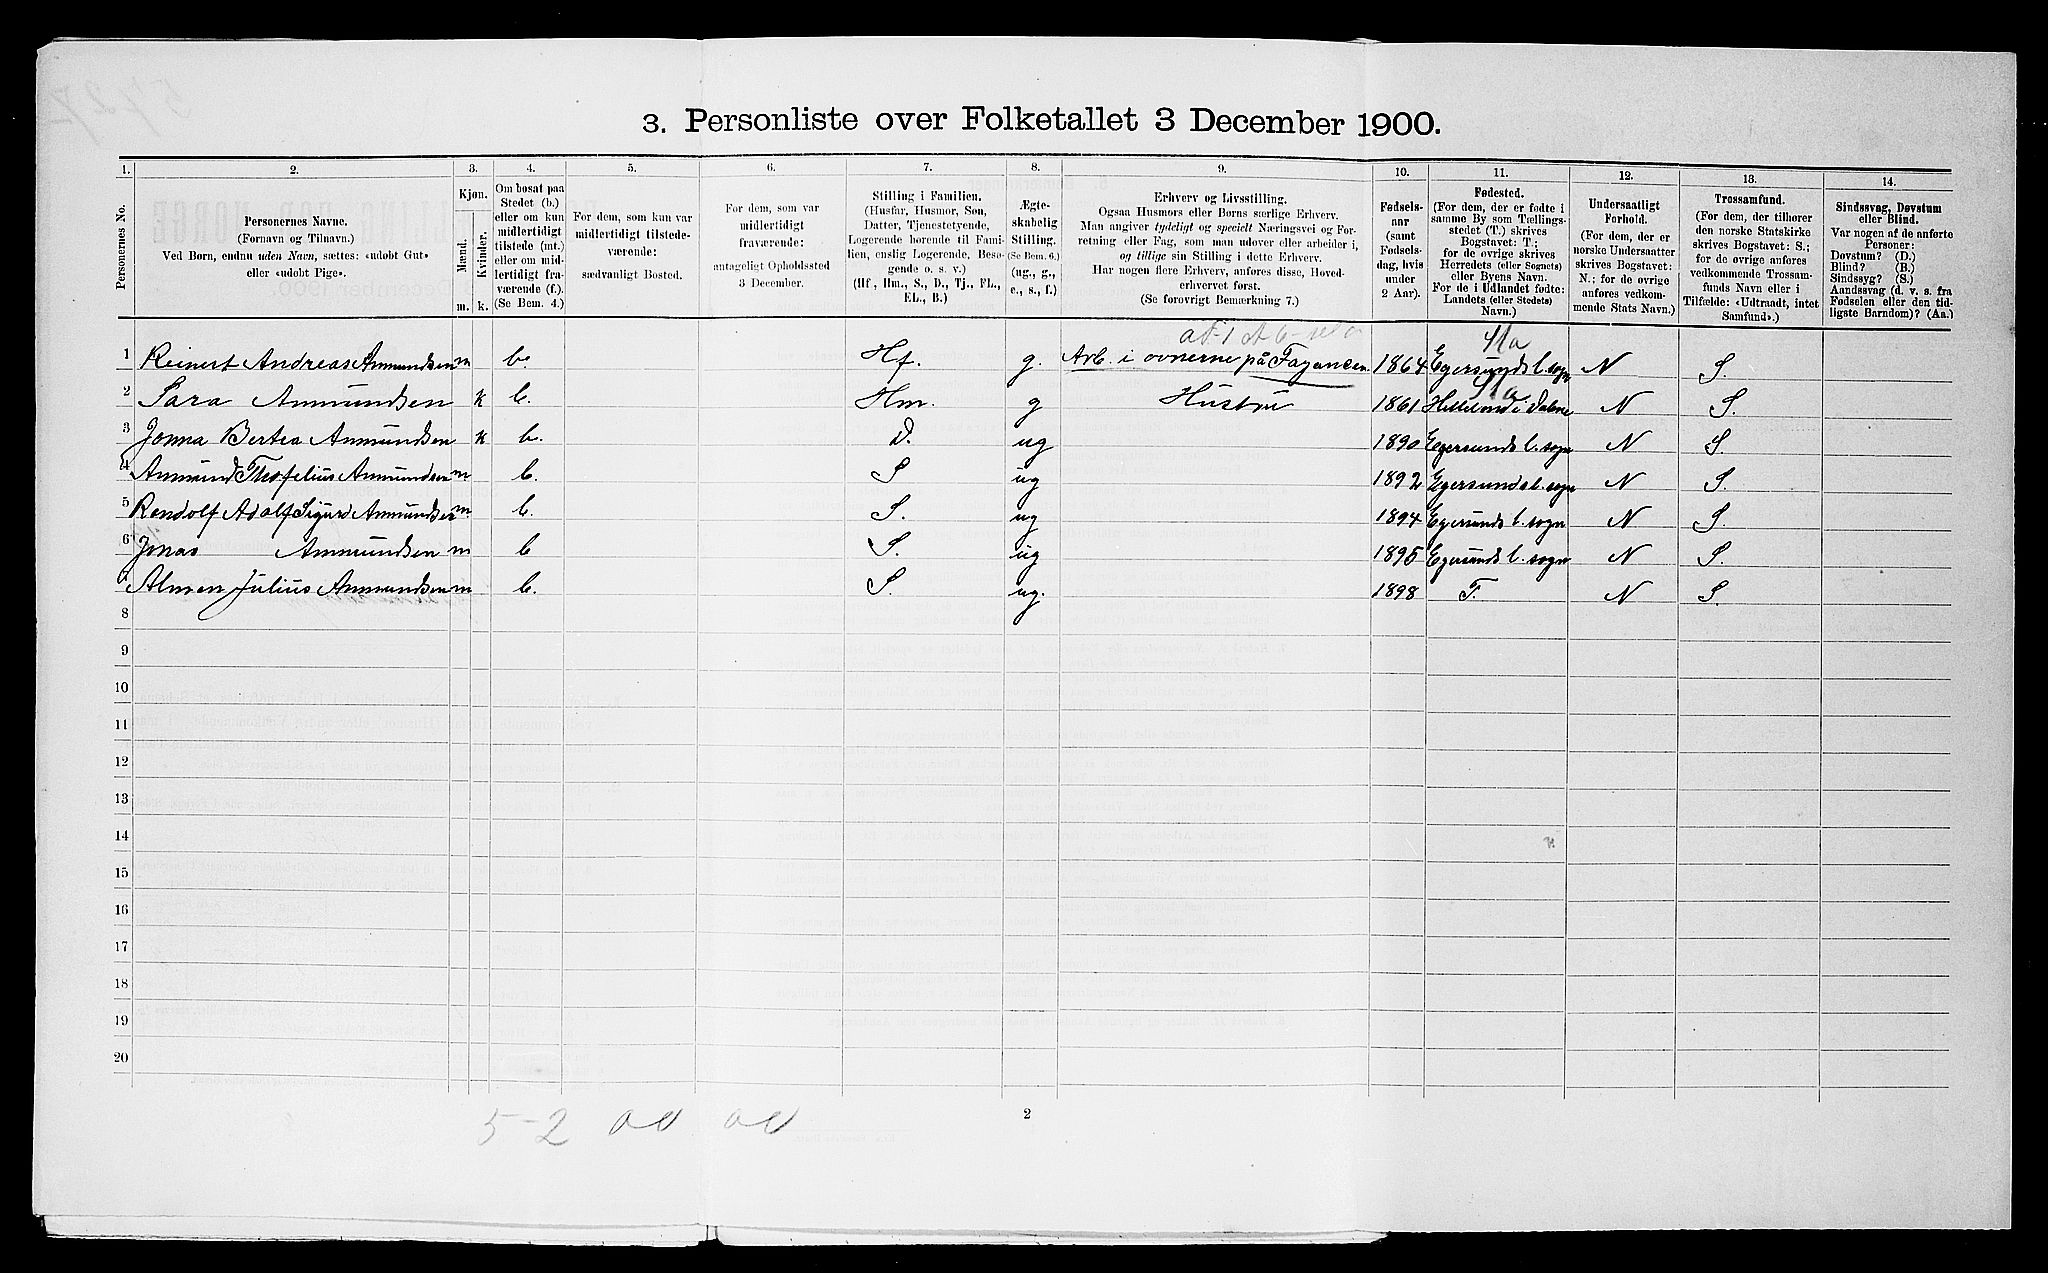 3. Personliste over Folketallet 3 December 1900.
1. 2. 3. 4. 5. 6. 7. 8. 9. 10. 11. 12. 13. 14.
Personernes No.
Personernes Navne.
(Fornavn og Tilnavn.)
Ved Børn, endnu uden Navn, sættes: «udøbt Gut»
eller «udøbt Pige».
Kjøn.
Mænd.
Kvinder.
m. k.
Om bosat paa
Stedet (b.)
eller om kun
midlertidigt
tilstede (mt.)
eller om mid-
lertidigt fra-
værende (f.)
(Se Bem. 4.)
For dem, som kun var
midlertidigt tilstede-
værende:
sædvanligt Bosted.
For dem, som var
midlertidigt
fraværende:
antageligt Opholdssted
3 December.
Stilling i Familien.
(Husfar, Husmor, Søn,
Datter, Tjenestetyende,
Logerende hørende til Fami-
lien, enslig Logerende, Besø-
gende o. s. v.)
(Hf., Hm., S., D., Tj., FL.,
EL., B.)
Ægte-
skabelig
Stilling.
(Se Bem. 6.)
(ug., g.,
e., s., f.)
Erhverv og Livsstilling.
Ogsaa Husmors eller Børns særlige Erhverv.
Man angiver tydeligt og specielt Næringsvei og For-
retning eller Fag, som man udøver eller arbeider i,
og tillige sin Stilling i dette Erhverv.
Har nogen flere Erhverv, anføres disse, Hoved-
erhvervet først.
(Se forøvrigt Bemærkning 7.)
Fødsels-
aar
(samt
Fødsels-
dag, hvis
under
2 Aar).
Fødested.
(For dem, der er fødte i
samme By som Tællings-
stedet (T.) skrives
Bogstavet: T.;
for de øvrige skrives
Herredets (eller Sognets)
eller Byens Navn.
For de i Udlandet fødte:
Landets (eller Stedets)
Navn.)
Undersaatligt
Forhold.
(For dem, der er
norske Undersaatter
skrives Bogstavet:
N.; for de øvrige
anføres vedkom-
mende Stats Navn.)
Trossamfund.
(For dem, der tilhører
den norske Statskirke
skrives Bogstav: S.;
for de øvrige anføres
vedkommende Trossam-
funds Navn eller i
Tilfælde: «Udtraadt, intet
Samfund».)
Sindssvag, Døvstum
eller Blind.
Var nogen af de anførte
Personer:
Døvstum? (D.)
Blind? (B.)
Sindssyg? (S.)
Aandssvag (d. v. s. fra
Fødselen eller den tid-
ligste Barndom)? (Aa.)
1 Reinert Andreas Anmundsen m b. Hf. g. Arb. i ovnerne på Fajancen. 1864 Egersunds l. sogn N S.
2 Sara Anmundsen k b. Hm. g Hustru 1861 Helleland i Dalne N S.
3 Jonna Bertea Anmundsen k b. D. ug 1890 Egersunds l. sogn N S.
4 Anmund Thofelius Anmundsen m b. S ug 1892 Egersunds l. sogn N S.
5 Rendolf Adolf Sigurd Anmundsen m. b. S. ug 1894 Egersunds l. sogn N S.
6 Jonas Anmundsen m b S. ug 1895 Egersunds l. sogn N S.
7 Almen Julius Anmundsen m b. S. ug. 1898 T. N S.
8
9
10
11
12
13
14
15
16
17
18
19
20
5-2
2